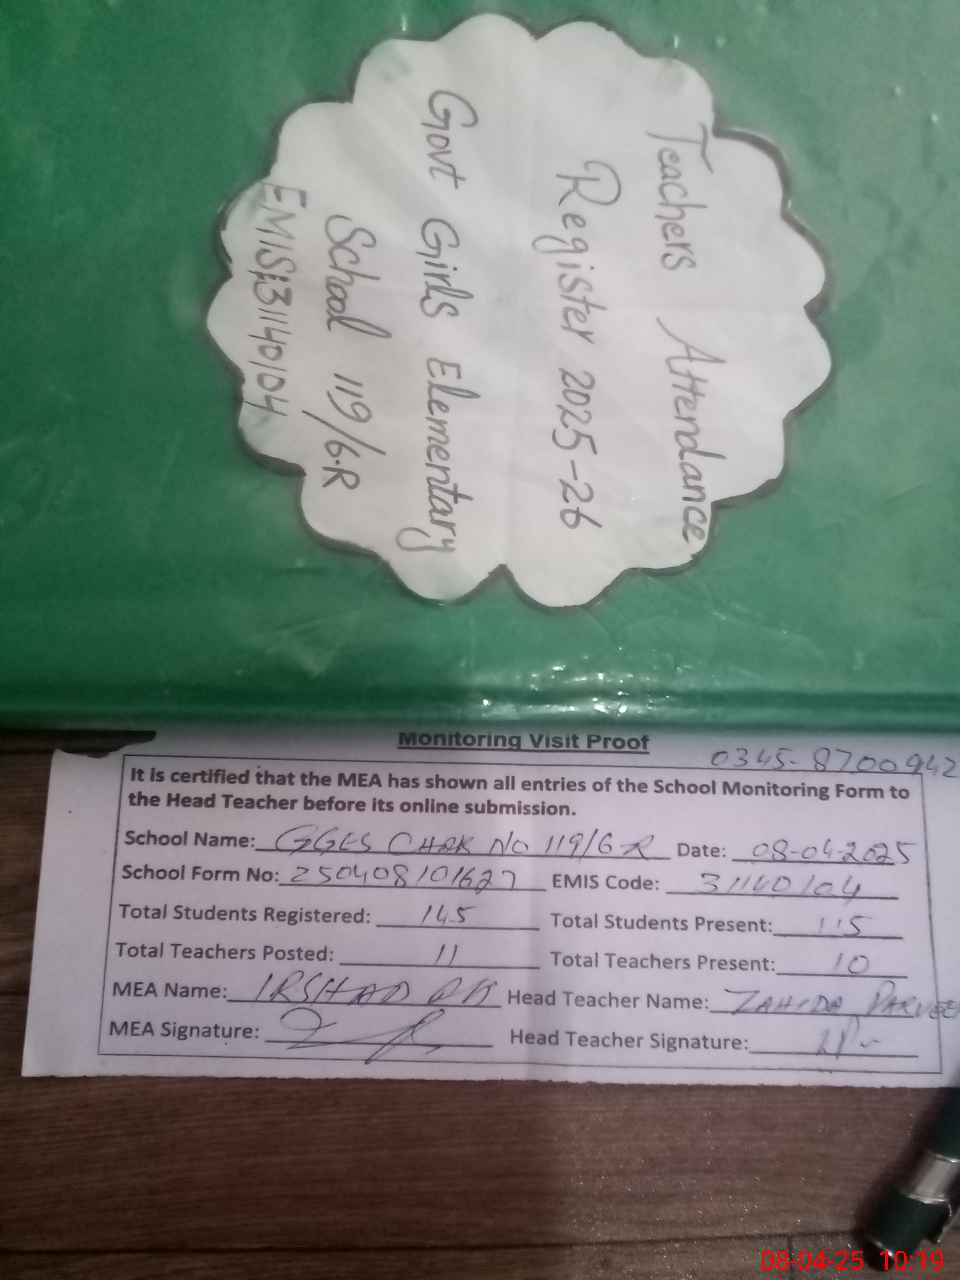 Teachers Attendance
Register 2025-26
Govt Girls Elementary
School 119/6.R
EMIS:31140104
Monitoring Visit Proof
0345-8700942
It is certified that the MEA has shown all entries of the School Monitoring Form to
the Head Teacher before its online submission.
School Name: GGES CHAK NO 119/6-R Date: 08-04-2025
School Form No: 250408101627 EMIS Code: 31140104
Total Students Registered: 145 Total Students Present: 115
Total Teachers Posted: 11 Total Teachers Present: 10
MEA Name: IRSHAD Head Teacher Name: ZAHIDA PARVEE
MEA Signature: Head Teacher Signature:
08-04-25 10:19